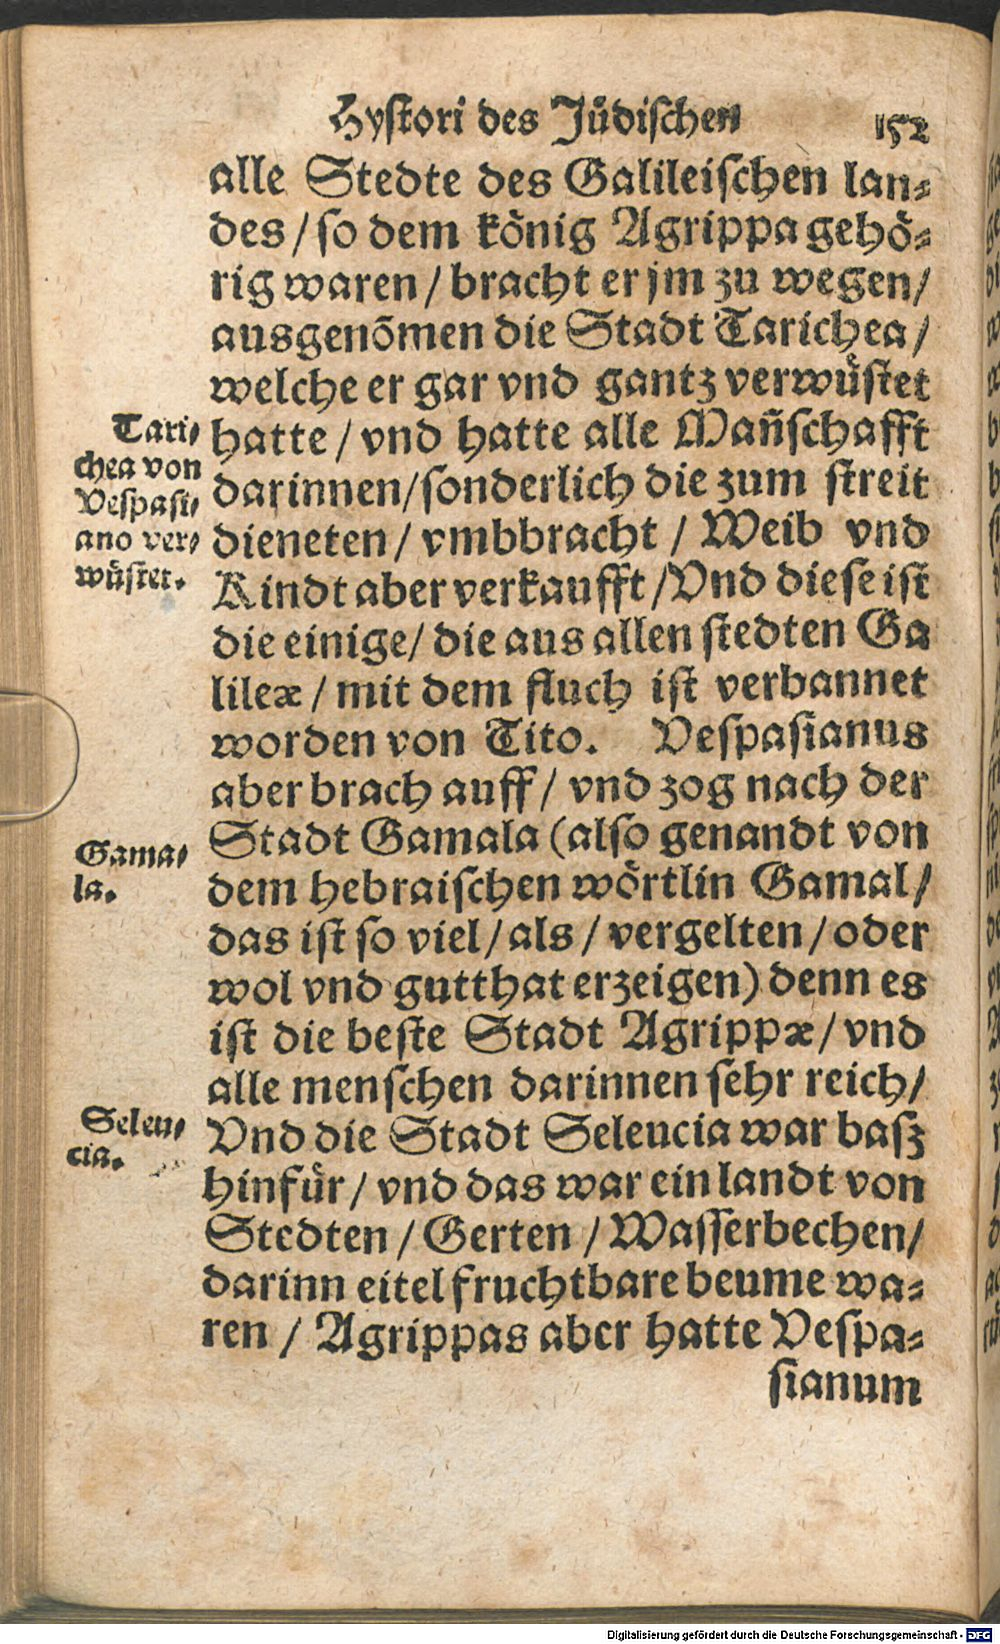 Hystori des Jůdischen
152
alle Stedte des Galileischen lan⸗
des / so dem kőnig Agrippa gehő⸗
rig waren / bracht er jm zu wegen /
ausgenõmen die Stadt Tarichea /
welche er gar vnd gantz verwůstet
hatte / vnd hatte alle Mañschafft
darinnen / sonderlich die zum streit
dieneten / vmbbracht / Weib vnd
Kindt aber verkaufft / Vnd diese ist
die einige / die aus allen stedten Ga
lileæ / mit dem fluch ist verbannet
worden von Tito. Vespasianus
aber brach auff / vnd zog nach der
Stadt Gamala (also genandt von
dem hebraischen wőrtlin Gamal /
das ist so viel / als / vergelten / oder
wol vnd gutthat erzeigen) denn es
ist die beste Stadt Agrippæ / vnd
alle menschen darinnen sehr reich /
Vnd die Stadt Seleucia war basz
hinfůr / vnd das war ein landt von
Stedten / Gerten / Wasserbechen /
darinn eitel fruchtbare beume wa⸗
ren / Agrippas aber hatte Vespa⸗
sianum
Tari⸗
chea von
Vespasi⸗
ano ver⸗
wůstet.
Gama⸗
la.
Seleu⸗
cia.
Digitalisierung gefördert durch die Deutsche Forschungsgemeinschaft - DFG